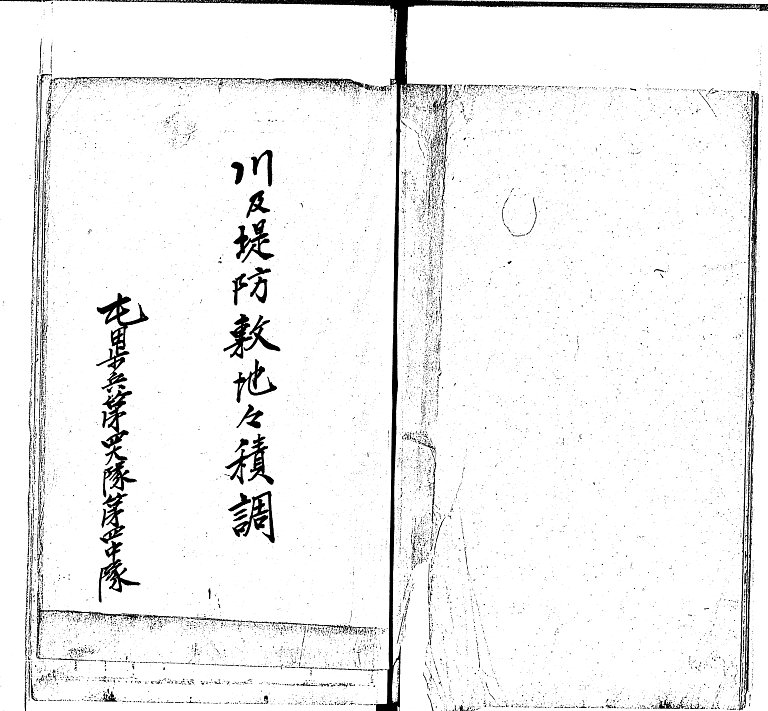 川及堤防敷地々積調
屯田歩兵第四大隊第四中隊